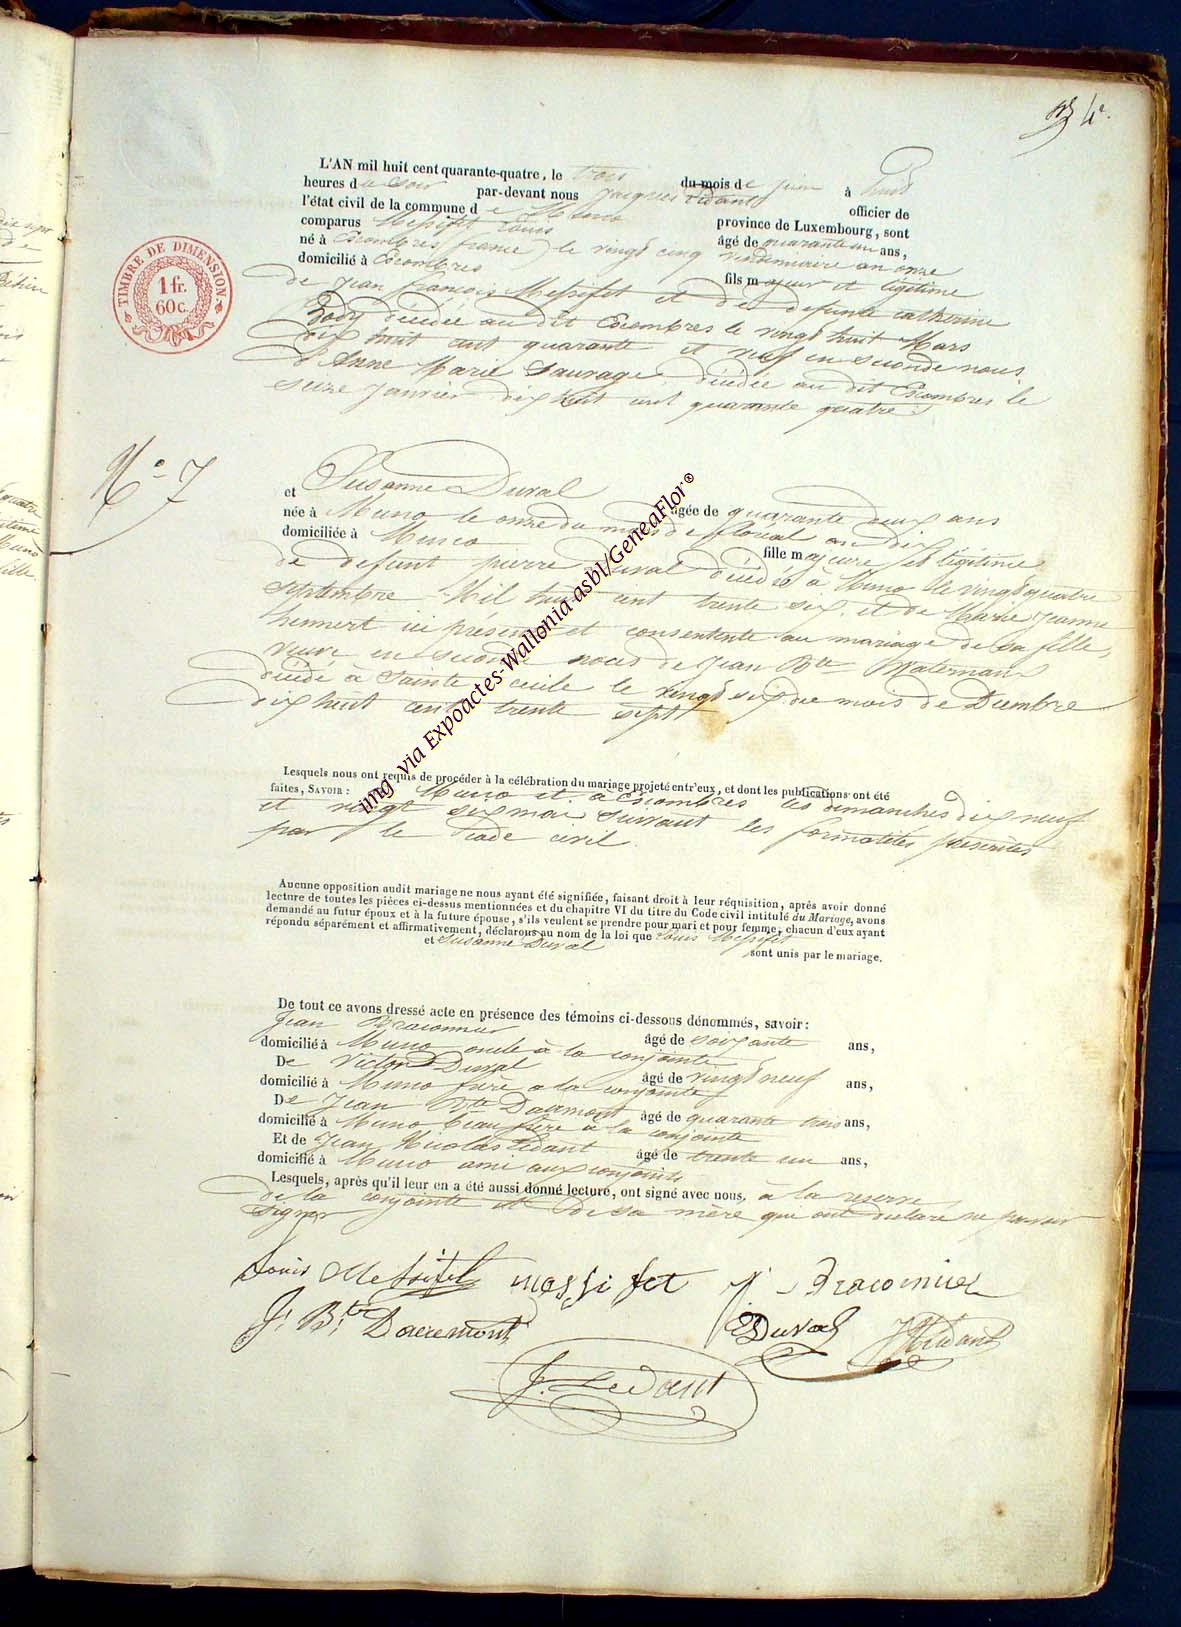 4e.
L'AN mil huit cent quarante-quatre, le trois du mois de juin à huit
heures du soir par-devant nous Jacques Lédant officier de
l'état civil de la commune de Muno province de Luxembourg, sont
comparus Messifet Louis âgé de quarante un ans,
né à Escombres (france) le vingt cinq vendemiaire an onze
domicilié à Escombres fils majeur et légitime
de Jean françois Messifet et de defunte catherine
Body décédée au dit Escombres le vingt huit Mars
dix huit cent quarante et veuf en seconde nous
d'Anne Marie Sauvage, décédée au dit Escombres le
seize Janvier dix huit cent quarante quatre
TIMBRE DE DIMENSION
1 fr.
60 c.
No 7
et Susanne Duval
née à Muno le onze du mois de floreal an dix âgée de quarante deux ans
domiciliée à Muno fille majeure et légitime
de defunt pierre Duval décédé à Muno le vingt quatre
Septembre Mil huit cent trente six, et de Marie Jeanne
hennert ici présente et consentente au mariage de sa fille,
veuve en seconde noces de Jean Bte
décédé à Sainte cecile le vingt six du mois de Decembre
dix huit cent trente sept
img via Expoactes-Wallonia-asbl/GeneaFlor®
Lesquels nous ont requis de procéder à la célébration du mariage projeté entr'eux, et dont les publications ont été
faites, SAVOIR : à Muno et à Escombres les dimanches dix neuf
et vingt six mai suivant les formalités prescrites
par le code civil.
Aucune opposition audit mariage ne nous ayant été signifiée, faisant droit à leur réquisition, après avoir donné
lecture de toutes les pièces ci-dessus mentionnées et du chapitre VI du titre du Code civil intitulé du Mariage, avons
demandé au futur époux et à la future épouse, s'ils veulent se prendre pour mari et pour femme, chacun d'eux ayant
répondu séparément et affirmativement, déclarons au nom de la loi que Louis Messifet
et Susanne Duval sont unis par le mariage.
De tout ce avons dressé acte en présence des témoins ci-dessous dénommés, savoir :
Jean Braconnier âgé de soixante ans,
domicilié à Muno oncle à la conjointe
De Victor Duval âgé de vingt neuf ans,
domicilié à Muno frère a la conjointe
De Jean Bte Dacremont âgé de quarante trois ans,
domicilié à Muno beau frère à la conjointe
Et de Jean Nicolas Lédant âgé de trente un ans,
domicilié à Muno ami aux conjoints
Lesquels, après qu'il leur en a été aussi donné lecture, ont signé avec nous, à la reserve
de la conjointe et de sa mère qui ont déclaré ne pouvoir
signer
Louis Messifet messifet J. Braconnier
J. Bte Dacremont Duval
J. Ledant